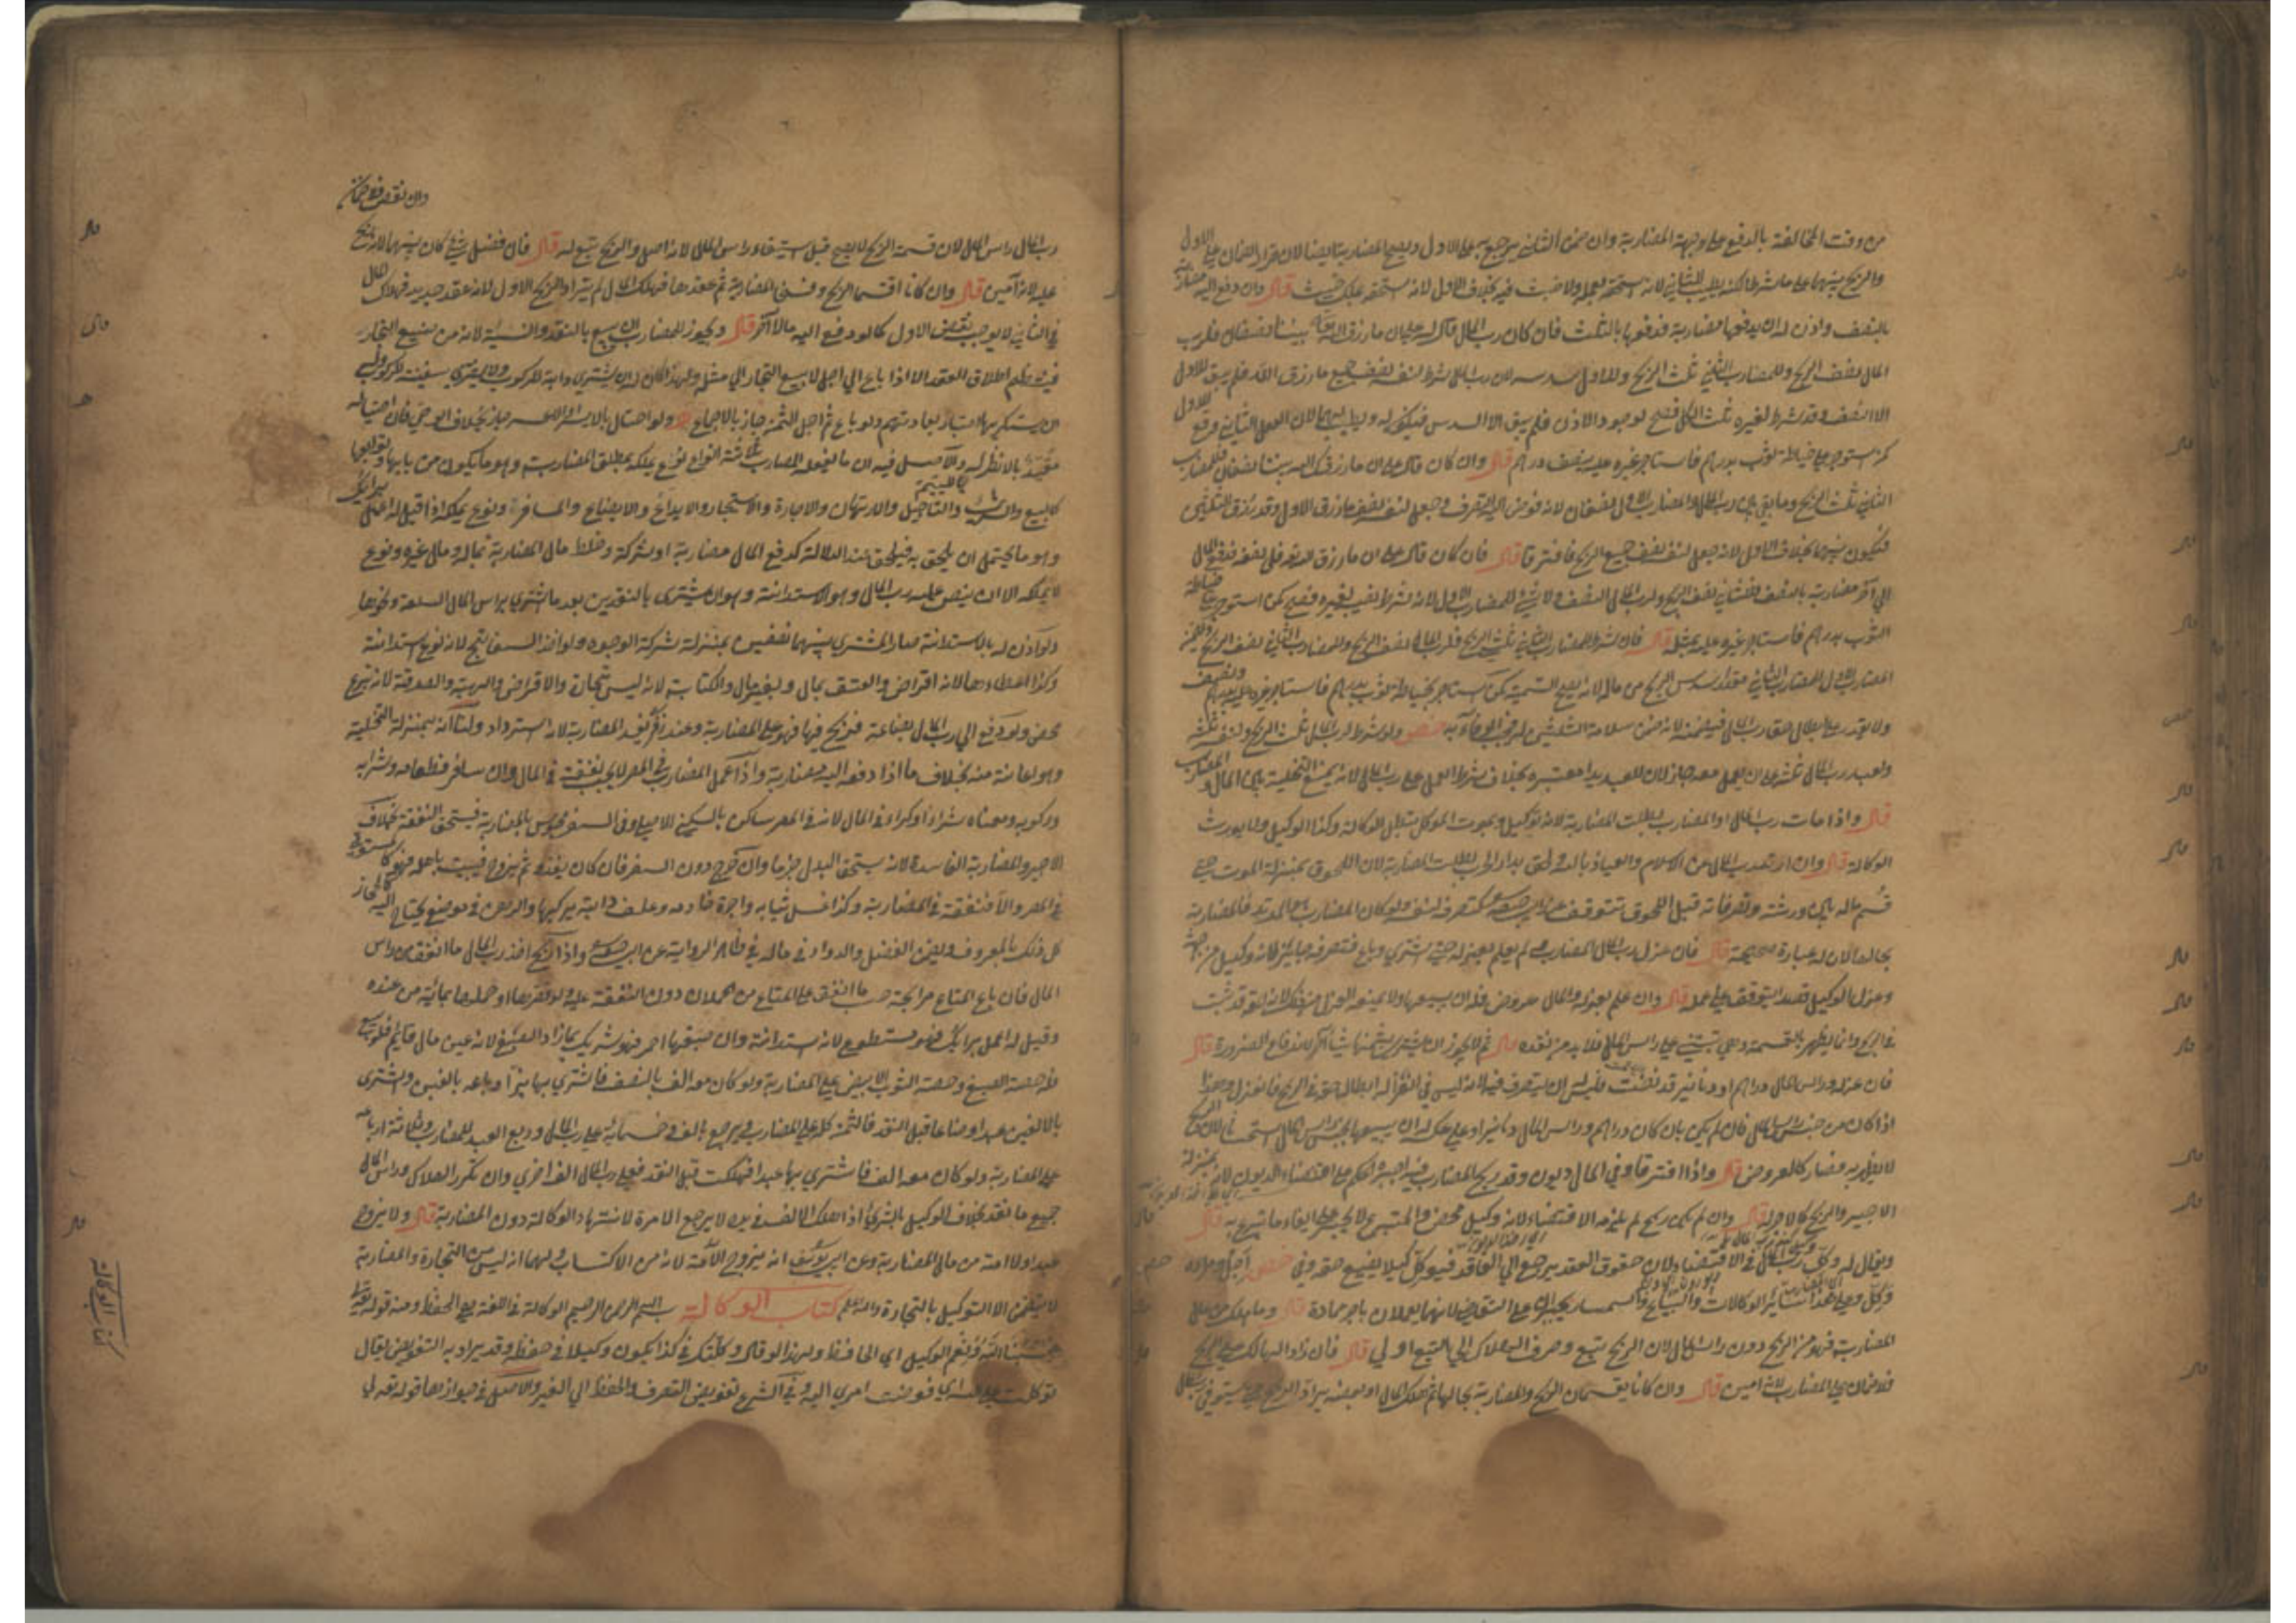 من وقت المخالفة بالدفع على وجه المضاربة وان ضمن الثاني يرجع به على الاول ويصح المضاربة ايضا لان قرار الضمان على الاول
والربح بينهما على ما شرطا لكنه يطيب للثاني لانه يستحقه بعمله ولا خبث فيه بخلاف الاول لانه يستحقه بملك خبيث قال وان دفع اليه مضاربة
بالنصف واذن له ان يدفعها مضاربة فدفعها بالثلث فان كان رب المال قال له على ان ما رزق الله بيننا نصفان فلرب
المال نصف الربح وللمضارب الثاني ثلث الربح وللاول سدسه لان رب المال شرط لنفسه نصف جميع ما رزق الله فلم يبق للاول
الا النصف وقد شرط لغيره ثلث الكل فصح لوجود الاذن فلم يبق الا السدس فيكون له ويطيب لهما لان العمل الثاني وقع للاول
كمن استوجر على خياطة ثوب بدرهم فاستاجر غيره عليه بنصف درهم قال وان كان قال على ان ما رزقك الله بيننا نصفان فللمضارب
الثاني ثلث الربح وما بقي بين رب المال والمضارب الاول نصفان لانه فوض اليه التصرف وجعل لنفسه نصف ما رزق الاول وقد رزق الثلثين
فيكون بينهما بخلاف الاول لانه جعل لنفسه نصف جميع الربح فافترقا قال فان كان قال على ان ما رزق الله تعالى فلي نصفه فدفع المال
الى آخر مضاربة بالنصف فللثاني نصف الربح ولرب المال النصف ولا شيء للمضارب الاول لانه شرط نصيبه لغيره فصح كمن استوجر على خياطة
الثوب بدرهم فاستاجر غيره عليه بمثله قال فان شرط للمضارب الثاني ثلثي الربح فلرب المال نصف الربح وللمضارب الثاني نصف الربح ويضمن
المضارب الاول للمضارب الثاني مقدار سدس الربح من ماله لانه يصح التسمية كمن استاجر لخياطة ثوب بدرهم فاستاجر غيره عليه بدرهم ونصف
ولا يقدر على ابطال حق رب المال فيضمنه لانه ضمن سلامة الثلثين له فيجب الوفاء به فصل ولو شرط لرب المال ثلث الربح ولنفسه ثلثه
ولعبد رب المال ثلثه على ان يعمل معه جاز لان للعبد يدا معتبرة بخلاف شرط العمل على رب المال لانه يمنع التخلية بين المال والمضارب
قال واذا مات رب المال او المضارب بطلت المضاربة لانه توكيل وبموت الموكل تبطل الوكالة وكذا الوكيل ولا يورث
الوكالة قال وان ارتد رب المال عن الاسلام والعياذ بالله ولحق بدار الحرب بطلت المضاربة لان اللحوق بمنزلة الموت حتى
قسم ماله بين ورثته وتصرفاته قبل اللحوق تتوقف عند ابي حنيفة كتصرفه لنفسه ولو كان المضارب هو المرتد فالمضاربة
بحالها لان له عبارة صحيحة قال فان عزل رب المال المضارب ولم يعلم بعزله حتى اشترى وباع فتصرفه جايز لانه وكيل من جهته
وعزل الوكيل قصدا يتوقف على علمه قال وان علم بعزله والمال عروض فله ان يبيعها ولا يمنعه العزل من ذلك لان حقه قد ثبت
في الربح وانما يظهر بالقسمة وهي تبتني على راس المال فلا بد من نقده قال ثم لا يجوز ان يشتري بثمنها شيئا آخر لاندفاع الضرورة قال
فان عزله وراس المال دراهم او دنانير قد نضت فليس له ان يتصرف فيها لانه ليس في العزل ابطال حقه في الربح فانعزل وهذا
اذا كان من جنس راس المال فان لم يكن بان كان دراهم وراس المال دنانير او على عكسه له ان يبيعها بجنس راس المال استحسانا لان الربح
لا يظهر به فصار كالعروض قال واذا افترقا وفي المال ديون وقد ربح المضارب فيه اجبره الحاكم على اقتضاء الديون لانه بمنزلة
الاجير والربح كالاجر له قال وان لم يكن ربح لم يلزمه الاقتضاء لانه وكيل محض والمتبرع لا يجبر على ايفاء ما تبرع به قال
ويقال له وكل رب المال في الاقتضاء لان حقوق العقد يرجع الى العاقد فيوكل كيلا يضيع حقه
وكل وعلى هذا سائر الوكالات والبياع والسمسار يجبران على التقاضي لانهما يعملان باجر عادة قال وما هلك من مال
المضاربة فهو من الربح دون راس المال لان الربح تبع وصرف الهلاك الى التبع اولى قال فان زاد الهالك على الربح
فلا ضمان على المضارب لانه امين قال وان كانا يقسمان الربح والمضاربة بحالها ثم هلك المال او بعضه يرادا الربح حتى يستوفي
وان نقص فلا ضمان
رب المال راس المال لان قسمة الربح لا يصح قبل استيفاء راس المال لانه اصل والربح تبع له قال فان فضل شيء كان بينهما لانه ربح
عليه لانه امين قال وان كانا اقتسما الربح وفسخا المضاربة ثم عقداها فهلك المال لم يترادا الربح الاول لانه عقد جديد فهلاك المال
في الثاني لا يوجب نقض الاول كما لو دفع اليه مالا آخر قال ويجوز للمضارب ان يبيع بالنقد والنسيئة لانه من صنيع التجار
فينتظم اطلاق العقد الا اذا باع الى اجل لا يبيع التجار الى مثله ولهذا كان له ان يشتري دابة للركوب ولا يشتري سفينة للركوب وله
ان يستكريها اعتبارا بعادتهم ولو باع ثم اجل الثمن جاز بالاجماع ولو احتال بالايسر او الاعسر جاز بخلاف الوصي فان احتياله
مقيد بالانظر له والاصل فيه ان ما يفعله المضارب ثلاثة انواع نوع يملكه بمطلق المضاربة وهو ما يكون من بابها وتوابعها
كالبيع والشراء والتاجيل والارتهان والاجارة والاستيجار والايداع والابضاع والمسافرة ونوع يملكه اذا قيل له اعمل برايك
وهو ما يحتمل ان يلحق به فيلحق عند الدلالة كدفع المال مضاربة او شركة وخلط مال المضاربة بماله ومال غيره ونوع
لا يملكه الا ان ينص عليه رب المال وهو الاستدانة وهو ان يشتري بالنقدين بعد ما اشترى براس المال السلعة ونحوها
ولو اذن له بالاستدانة صار المشترى بينهما نصفين بمنزلة شركة الوجوه ولو اخذ السفاتج لانه نوع استدانة
وكذا اعطاءها لانه اقراض والعتق بمال وبغير مال والكتابة لانه ليس بتجارة والاقراض والهبة والصدقة لانه تبرع
محض ولو دفع الى رب المال بضاعة فربح فيها فهو على المضاربة وعند زفر يفسد المضاربة لانه استرداد ولنا انه بمنزلة التخلية
وهو اعانة منه بخلاف ما اذا دفعه اليه مضاربة واذا عمل المضارب في المصر لا يجب نفقته في المال وان سافر فطعامه وشرابه
وركوبه ومعناه شراء او كراء في المال لانه في المصر ساكن بالسكنى الاصلي وفي السفر محبوس بالمضاربة فيستحق النفقة بخلاف
الاجير والمضاربة الفاسدة لانه يستحق البدل جزما وان خرج دون السفر فان كان يغدو ثم يروح فيبيت باهله فهو كالسوقي
في المصر والا فنفقته في المضاربة وكذا غسل ثيابه واجرة خادمه وعلف دابته يركبها والدهن في موضع يحتاج اليه كالحجاز
كل ذلك بالمعروف ويضمن الفضل والدواء في ماله في ظاهر الرواية عن ابي حنيفة واذا ربح اخذ رب المال ما انفق من راس
المال فان باع المتاع مرابحة حسب ما انفق على المتاع من الحملان دون النفقة عليه ولو قصرها او حملها بمائة من عنده
وقيل له اعمل برايك فهو متطوع لانه استدانة وان صبغها احمر فهو شريك بما زاد الصبغ لانه عين مال قائم
فله حصة الصبغ وحصة الثوب الابيض على المضاربة ولو كان معه الف بالنصف فاشترى بها بزا وباعه بالفين واشترى
بالالفين عبدا وضاعا قبل النقد فالثمن كله على المضارب ويرجع بالف وخمسمائة على رب المال وربع العبد للمضارب وثلاثة ارباعه
على المضاربة ولو كان معه الف فاشترى بها عبدا فهلكت قبل النقد فعلى رب المال الف اخرى وان تكرر الهلاك وراس المال
جميع ما نقد بخلاف الوكيل بالشراء اذا هلك الالف في يده لا يرجع الا مرة لانتهاء الوكالة دون المضاربة قال ولا يزوج
عبدا ولا امة من مال المضاربة وعن ابي يوسف انه يزوج الامة لانه من الاكتساب ولهما انه ليس من التجارة والمضاربة
لا يتضمن الا التوكيل بالتجارة والله اعلم كتاب الوكالة بسم الله الرحمن الرحيم الوكالة في اللغة هي الحفظ ومنه قوله تعالى
حسبنا الله ونعم الوكيل اي الحافظ ولهذا لو قال وكلتك في كذا يكون وكيلا في حفظه وقد يراد به التفويض يقال
توكلت على الله اي فوضت امري اليه وفي الشرع تفويض التصرف والحفظ الى الغير والاصل في جوازها قوله تعالى
كتاب الوكالة